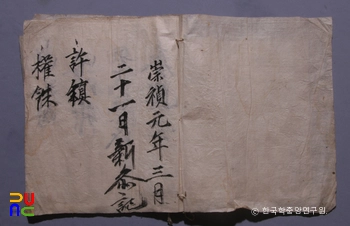 崇禎元年三月
二十一日新參記
許䅡
權銖
© 한국학중앙연구원